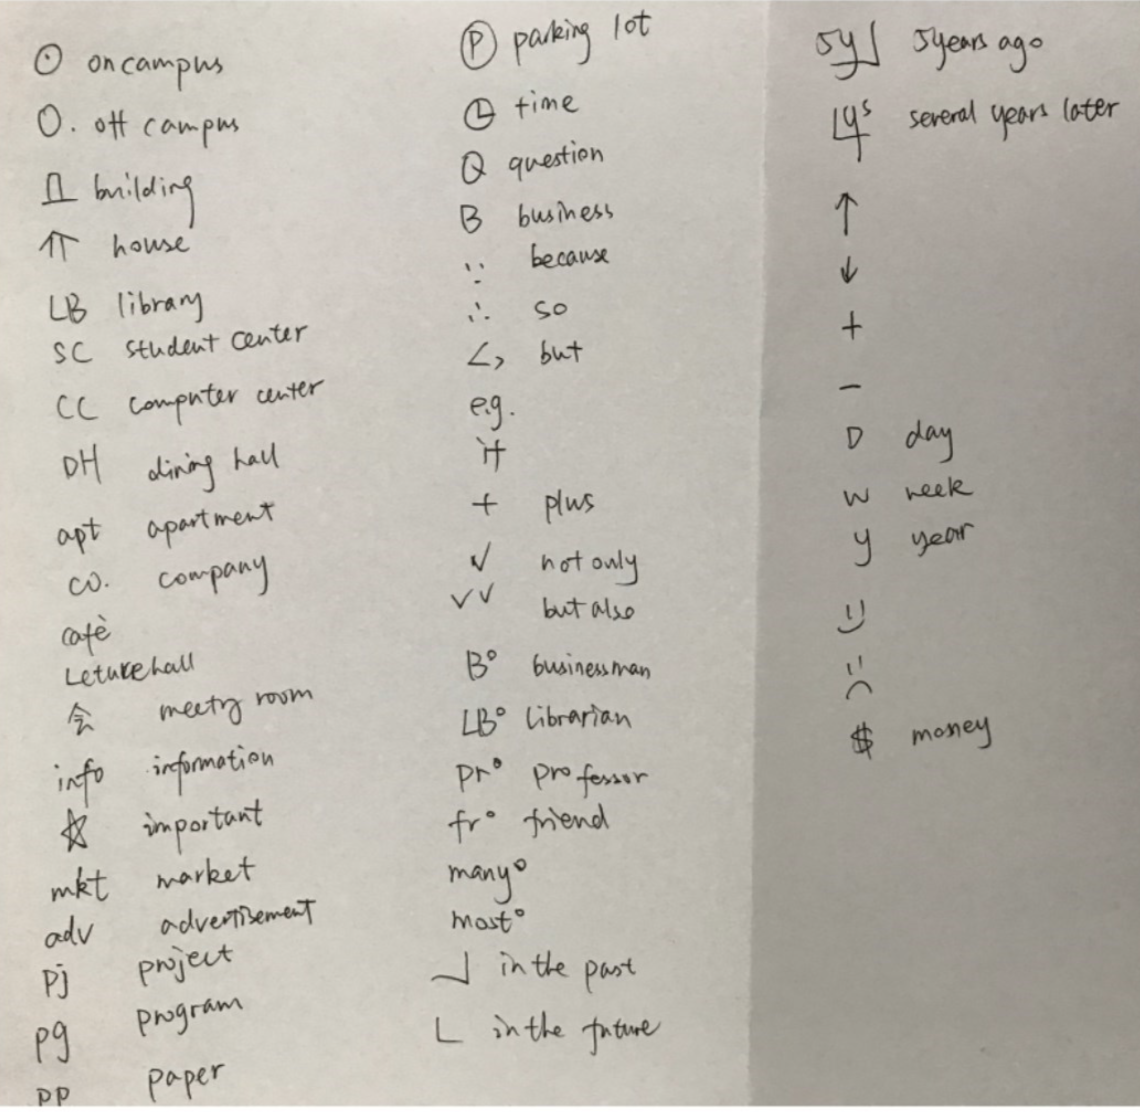 ⊙ on campus
O. off campus
building
house
LB library
SC student center
CC computer center
DH dining hall
apt apartment
co. company
cafè
Leturehall
会 meetig room
info information
☆ important
mkt market
adv advertisement
pj project
pg program
pp paper
Ⓟ parking lot
time
Q question
B business
∵ because
∴ so
<> but
e.g.
if
+ plus
✓ not only
✓✓ but also
B° businessman
LB° Librarian
pr° professor
fr° friend
many°
most°
┘ in the past
L in the future
5y┘ 5years ago
Lyˢ several years later
↑
↓
+
−
D day
w week
y year
$ money